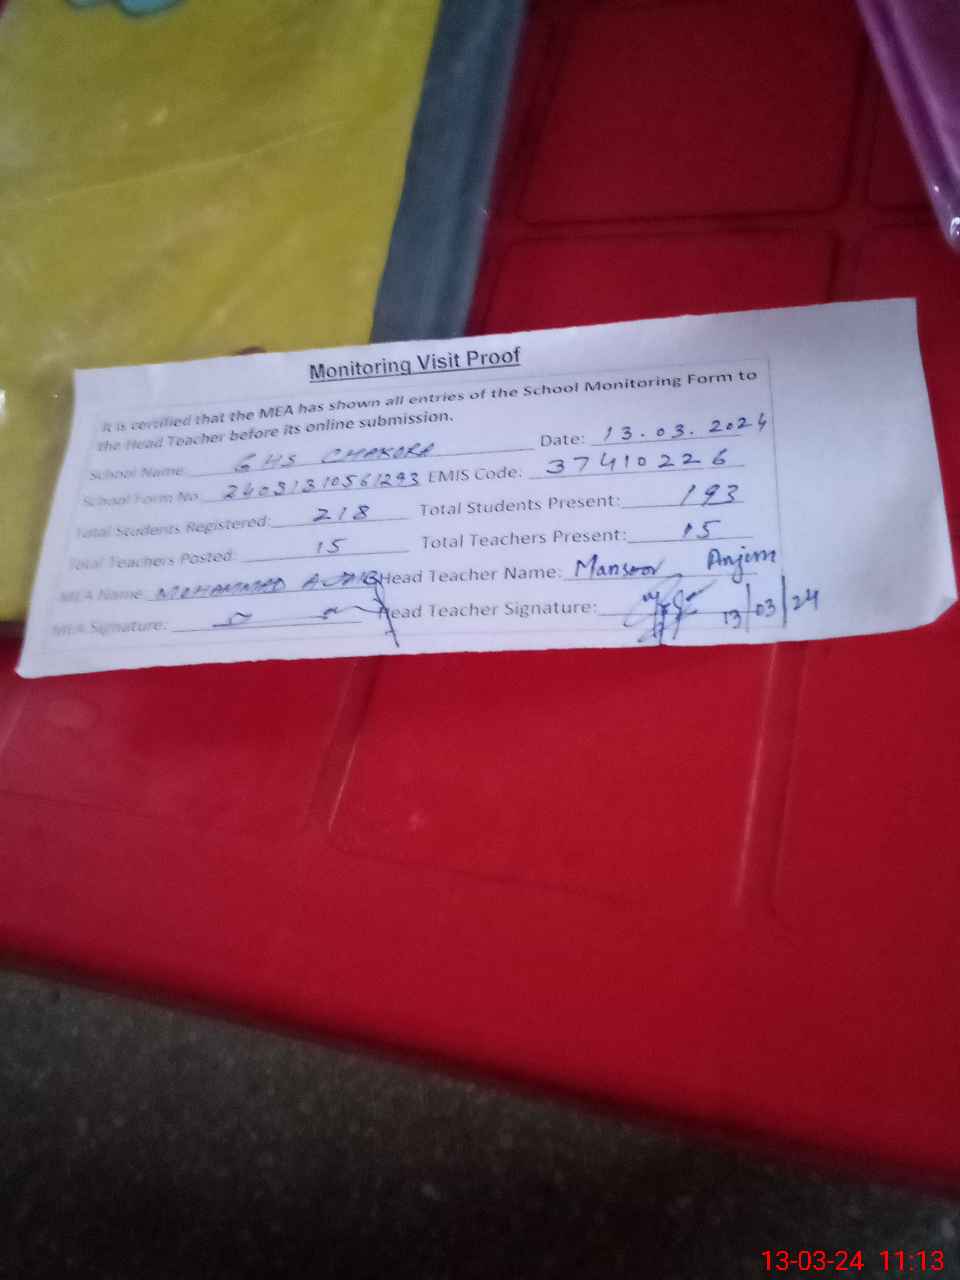 Monitoring Visit Proof
It is certified that the MEA has shown all entries of the School Monitoring Form to
the Head Teacher before its online submission.
School Name: GHS CHAKORA Date: 13.03.2024
School Form No. EMIS Code: 37410226
Total Students Registered: 218 Total Students Present: 193
Total Teachers Posted: 15 Total Teachers Present: 15
MEA Name: MOHAMMAD Head Teacher Name: Mansoor Anjum
MEA Signature: Head Teacher Signature: 13/03/24
13-03-24 11:13